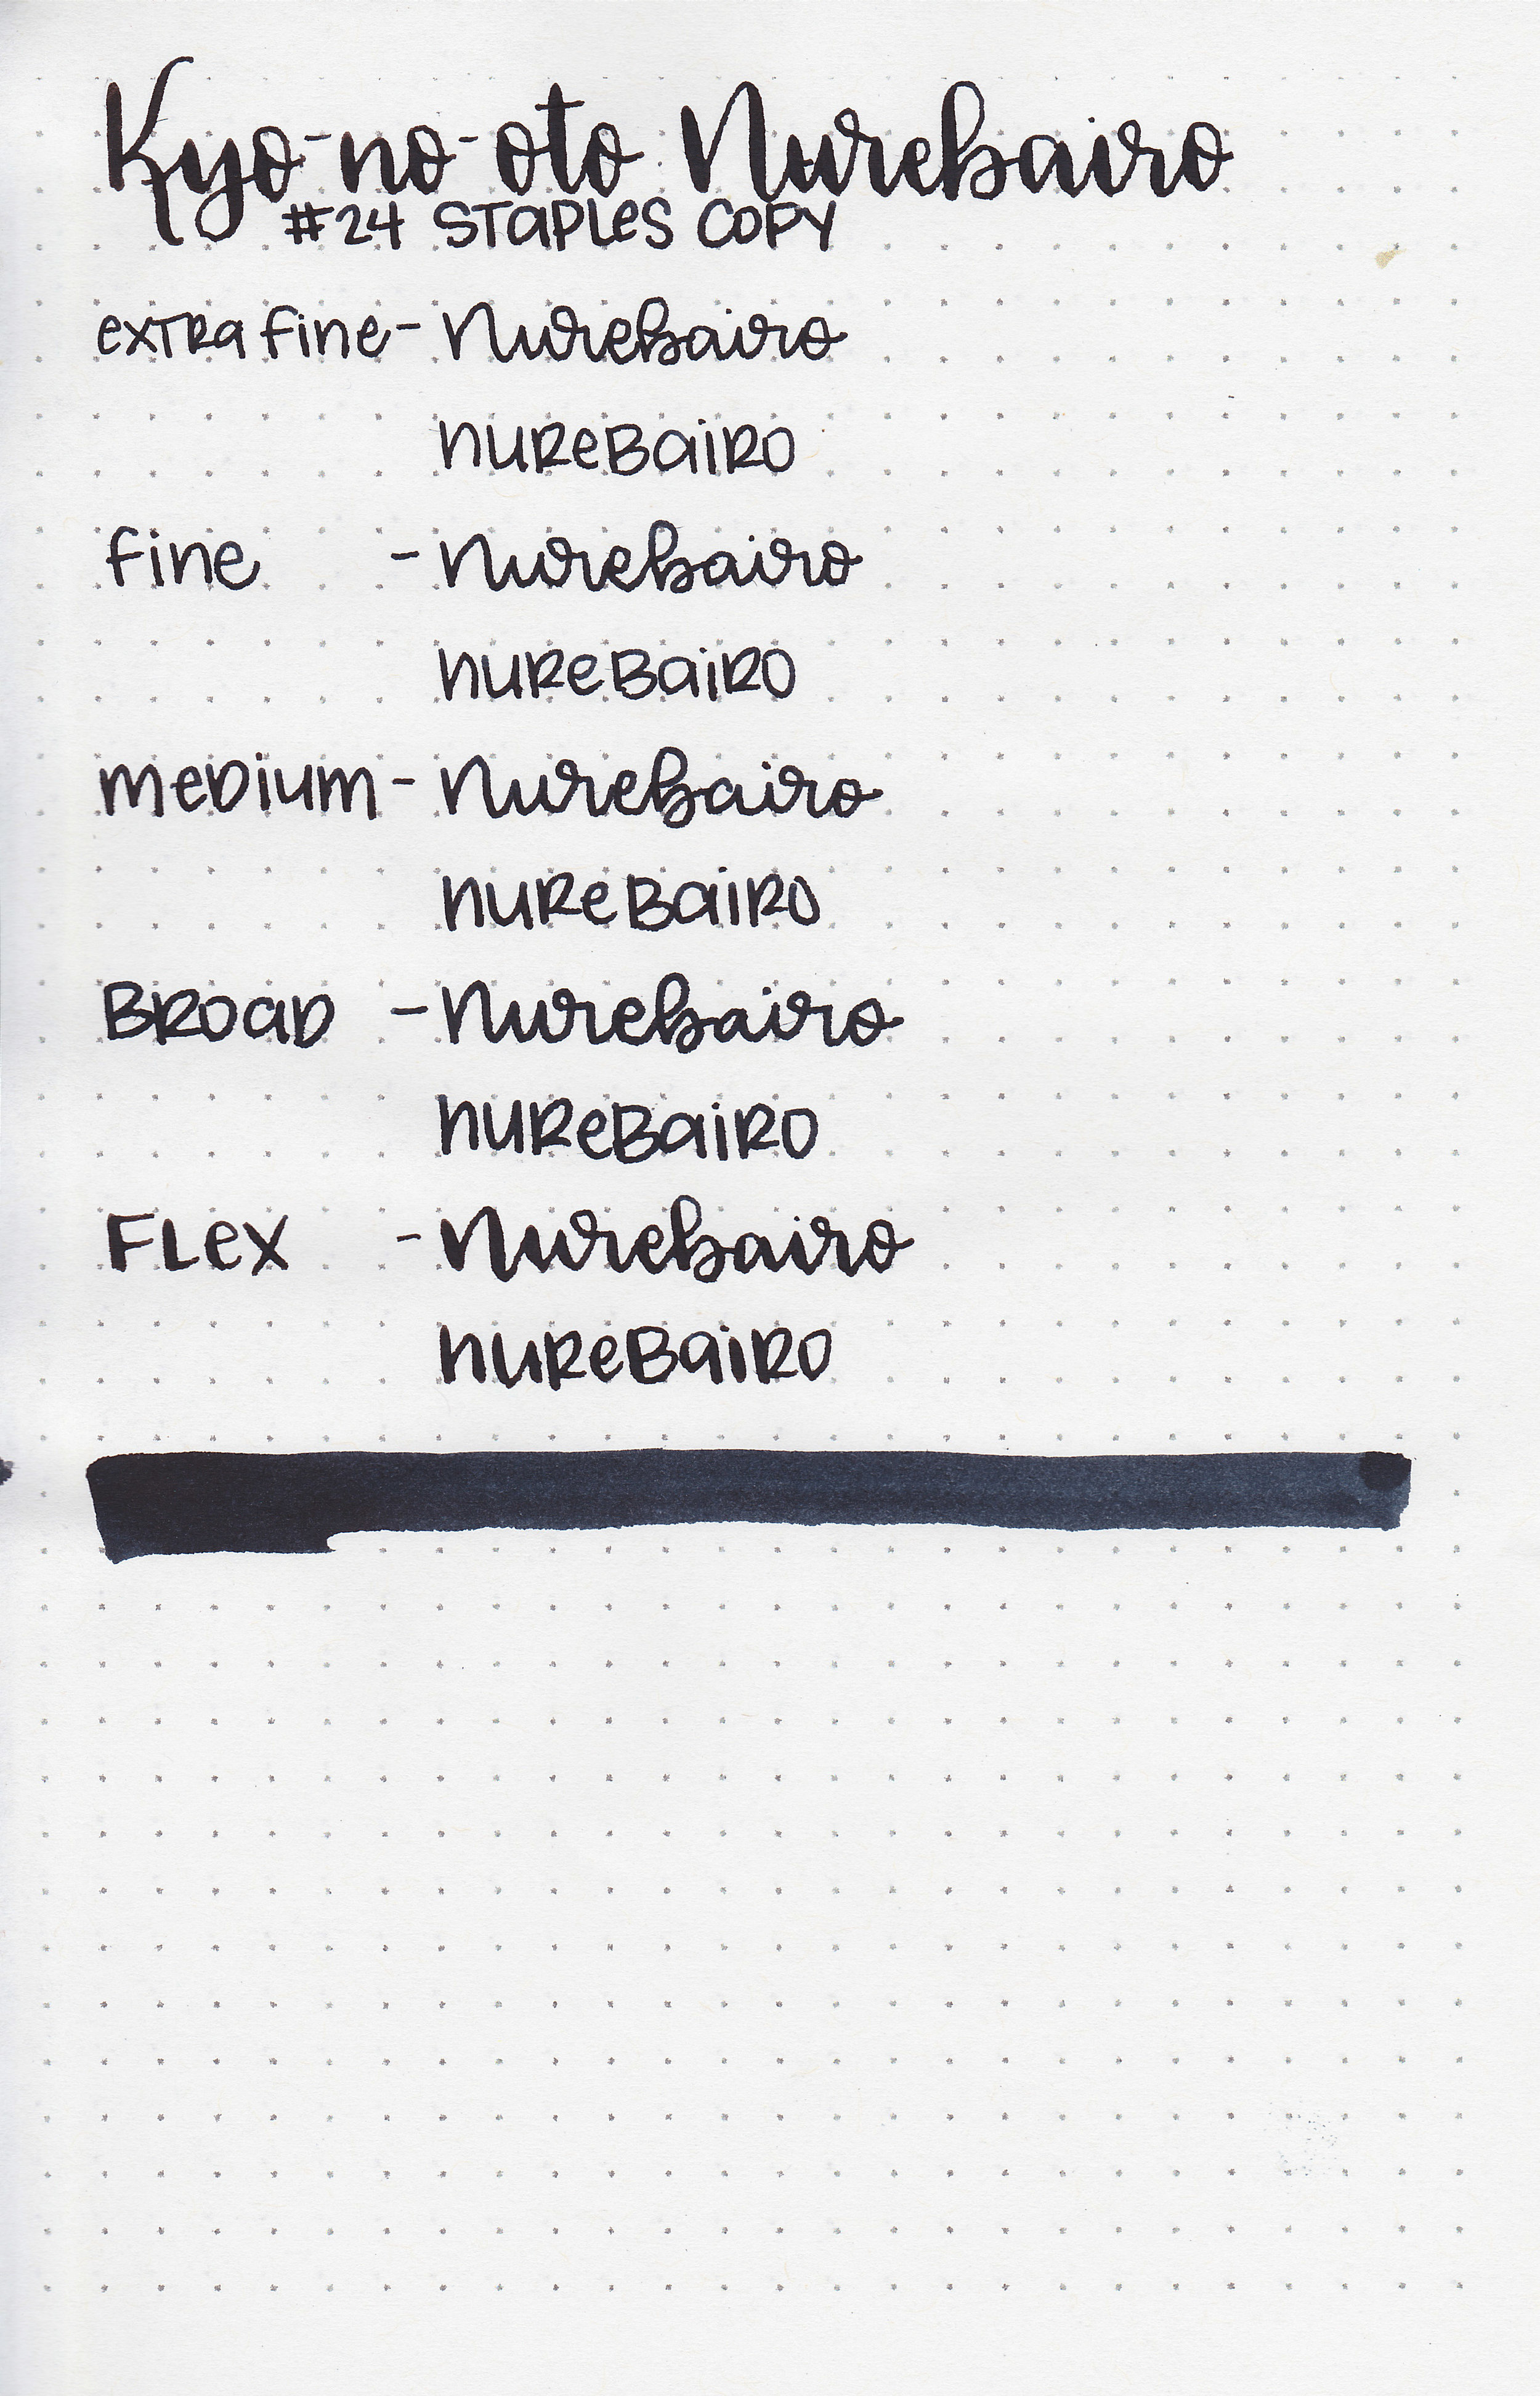 Kyo-no-oto Nurebairo
#24 Staples Copy
extra fine - Nurebairo
nurebairo
fine - Nurebairo
nurebairo
medium - Nurebairo
nurebairo
Broad - Nurebairo
nurebairo
Flex - Nurebairo
nurebairo